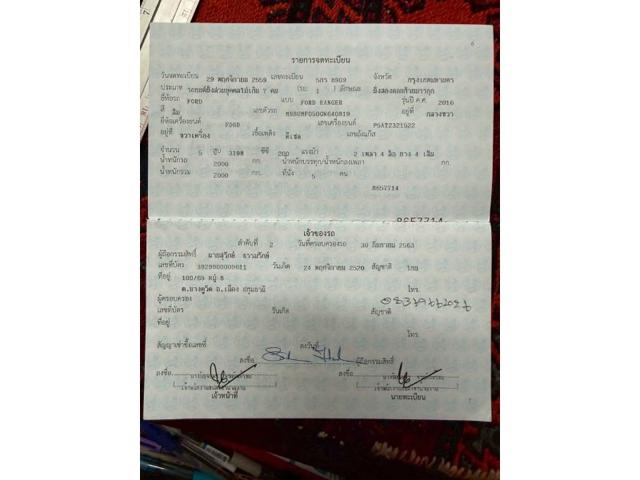 6
รายการจดทะเบียน
วันจดทะเบียน 29 พฤศจิกายน 2559 เลขทะเบียน 5กร 8909 จังหวัด กรุงเทพมหานคร
ประเภท รถยนต์นั่งส่วนบุคคลไม่เกิน 7 คน (รย. 1 ) ลักษณะ นั่งสองตอนท้ายบรรทุก
ยี่ห้อรถ FORD แบบ FORD RANGER รุ่นปี ค.ศ. 2016
สี ส้ม เลขตัวรถ อยู่ที่ กลางขวา
ยี่ห้อเครื่องยนต์ FORD เลขเครื่องยนต์ P5AT2321522
อยู่ที่ ขวาเครื่อง เชื้อเพลิง ดีเซล เลขถังแก๊ส
จำนวน 5 สูบ 3198 ซีซี 200 แรงม้า 2 เพลา 4 ล้อ ยาง 4 เส้น
น้ำหนักรถ 2000 กก. น้ำหนักบรรทุก/น้ำหนักลงเพลา กก.
น้ำหนักรวม 2000 กก. ที่นั่ง 5 คน
8657714
8657714
เจ้าของรถ
ลำดับที่ 2 วันที่ครอบครองรถ 30 กันยายน 2563
ผู้ถือกรรมสิทธิ์
เลขที่บัตร วันเกิด 24 พฤศจิกายน 2520 สัญชาติ ไทย
ที่อยู่ 100/69 หมู่ 8
ต.บางคูวัด อ.เมือง ปทุมธานี โทร.
ผู้ครอบครอง
เลขที่บัตร วันเกิด สัญชาติ
ที่อยู่ โทร.
สัญญาเช่าซื้อเลขที่ ลงวันที่
ลงชื่อ ผู้ถือกรรมสิทธิ์
ลงชื่อ ลงชื่อ
เจ้าหน้าที่ นายทะเบียน
7